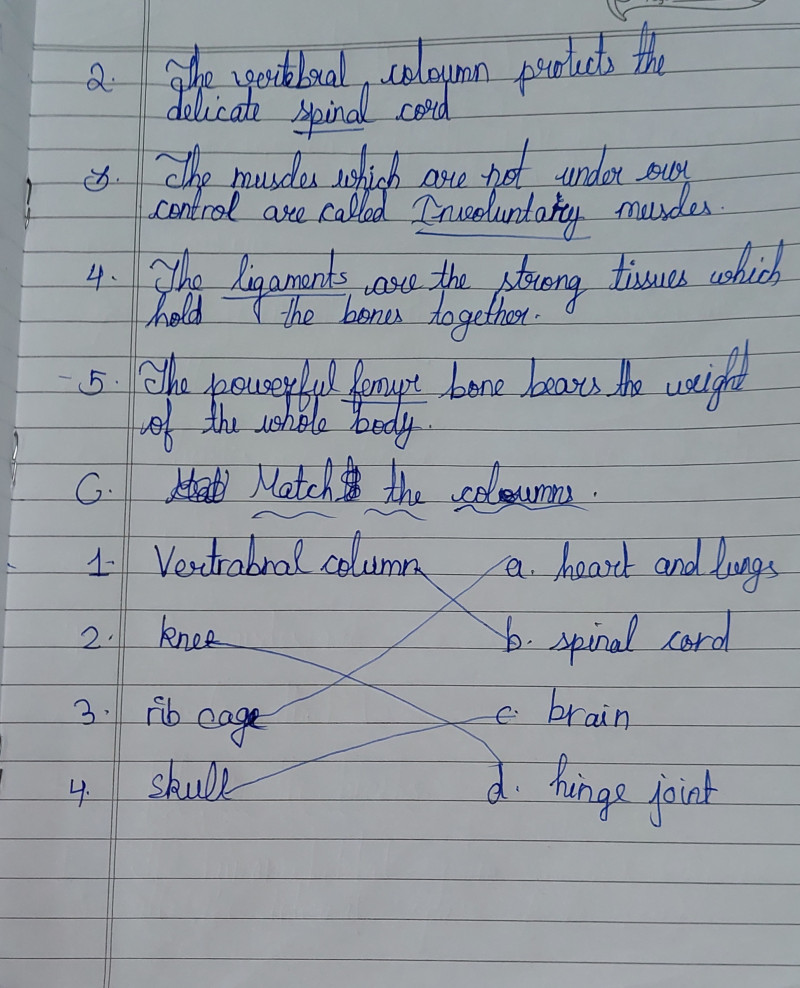 2. The vertebral coloumn protects the
delicate spinal cord
3. The muscles which are not under our
control are called Involuntary muscles.
4. The ligaments are the strong tissues which
hold the bones together.
5. The powerful femur bone bears the weight
of the whole body.
C. Match the coloumns.
1- Vertrabral column a. heart and lungs
2. knee b. spinal cord
3. rib cage c. brain
4. skull d. hinge joint